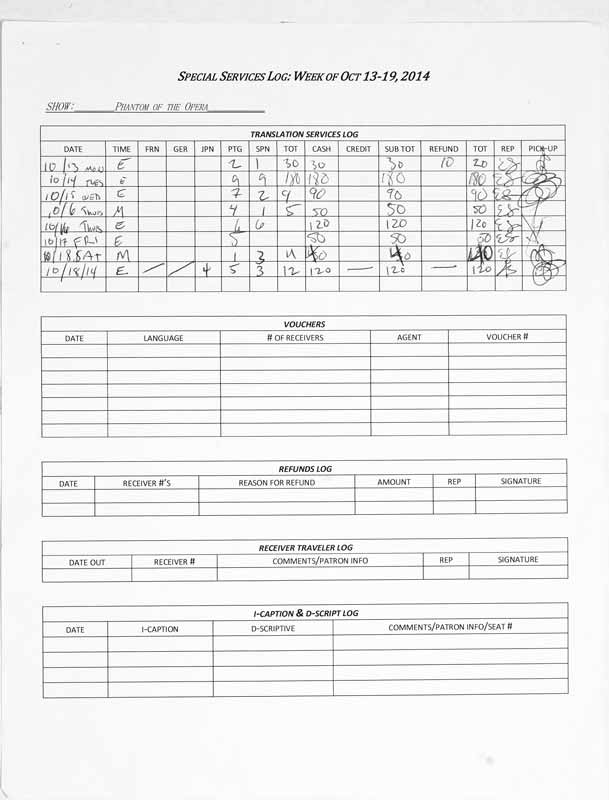 SPECIAL SERVICES LOG: WEEK OF OCT 13-19, 2014
SHOW: PHANTOM OF THE OPERA
TRANSLATION SERVICES LOG
DATE TIME FRN GER JPN PTG SPN TOT CASH CREDIT SUB TOT REFUND TOT REP PICK-UP
10/13 MON E 2 1 30 30 30 10 20 ES
10/14 TUES E 9 9 180 180 180 180 ES
10/15 WED E 7 2 9 90 90 90 ES
10/6 THUR M 4 1 5 50 50 50 ES
10/16 THUR E 6 6 120 120 120 ES
10/17 FRI E 5 50 50 50 ES
10/18 SAT M 1 3 4 40 40 40
10/18/14 E — — 4 5 3 12 120 — 120 — 120
VOUCHERS
DATE LANGUAGE # OF RECEIVERS AGENT VOUCHER #
REFUNDS LOG
DATE RECEIVER #'S REASON FOR REFUND AMOUNT REP SIGNATURE
RECEIVER TRAVELER LOG
DATE OUT RECEIVER # COMMENTS/PATRON INFO REP SIGNATURE
I-CAPTION & D-SCRIPT LOG
DATE I-CAPTION D-SCRIPTIVE COMMENTS/PATRON INFO/SEAT #